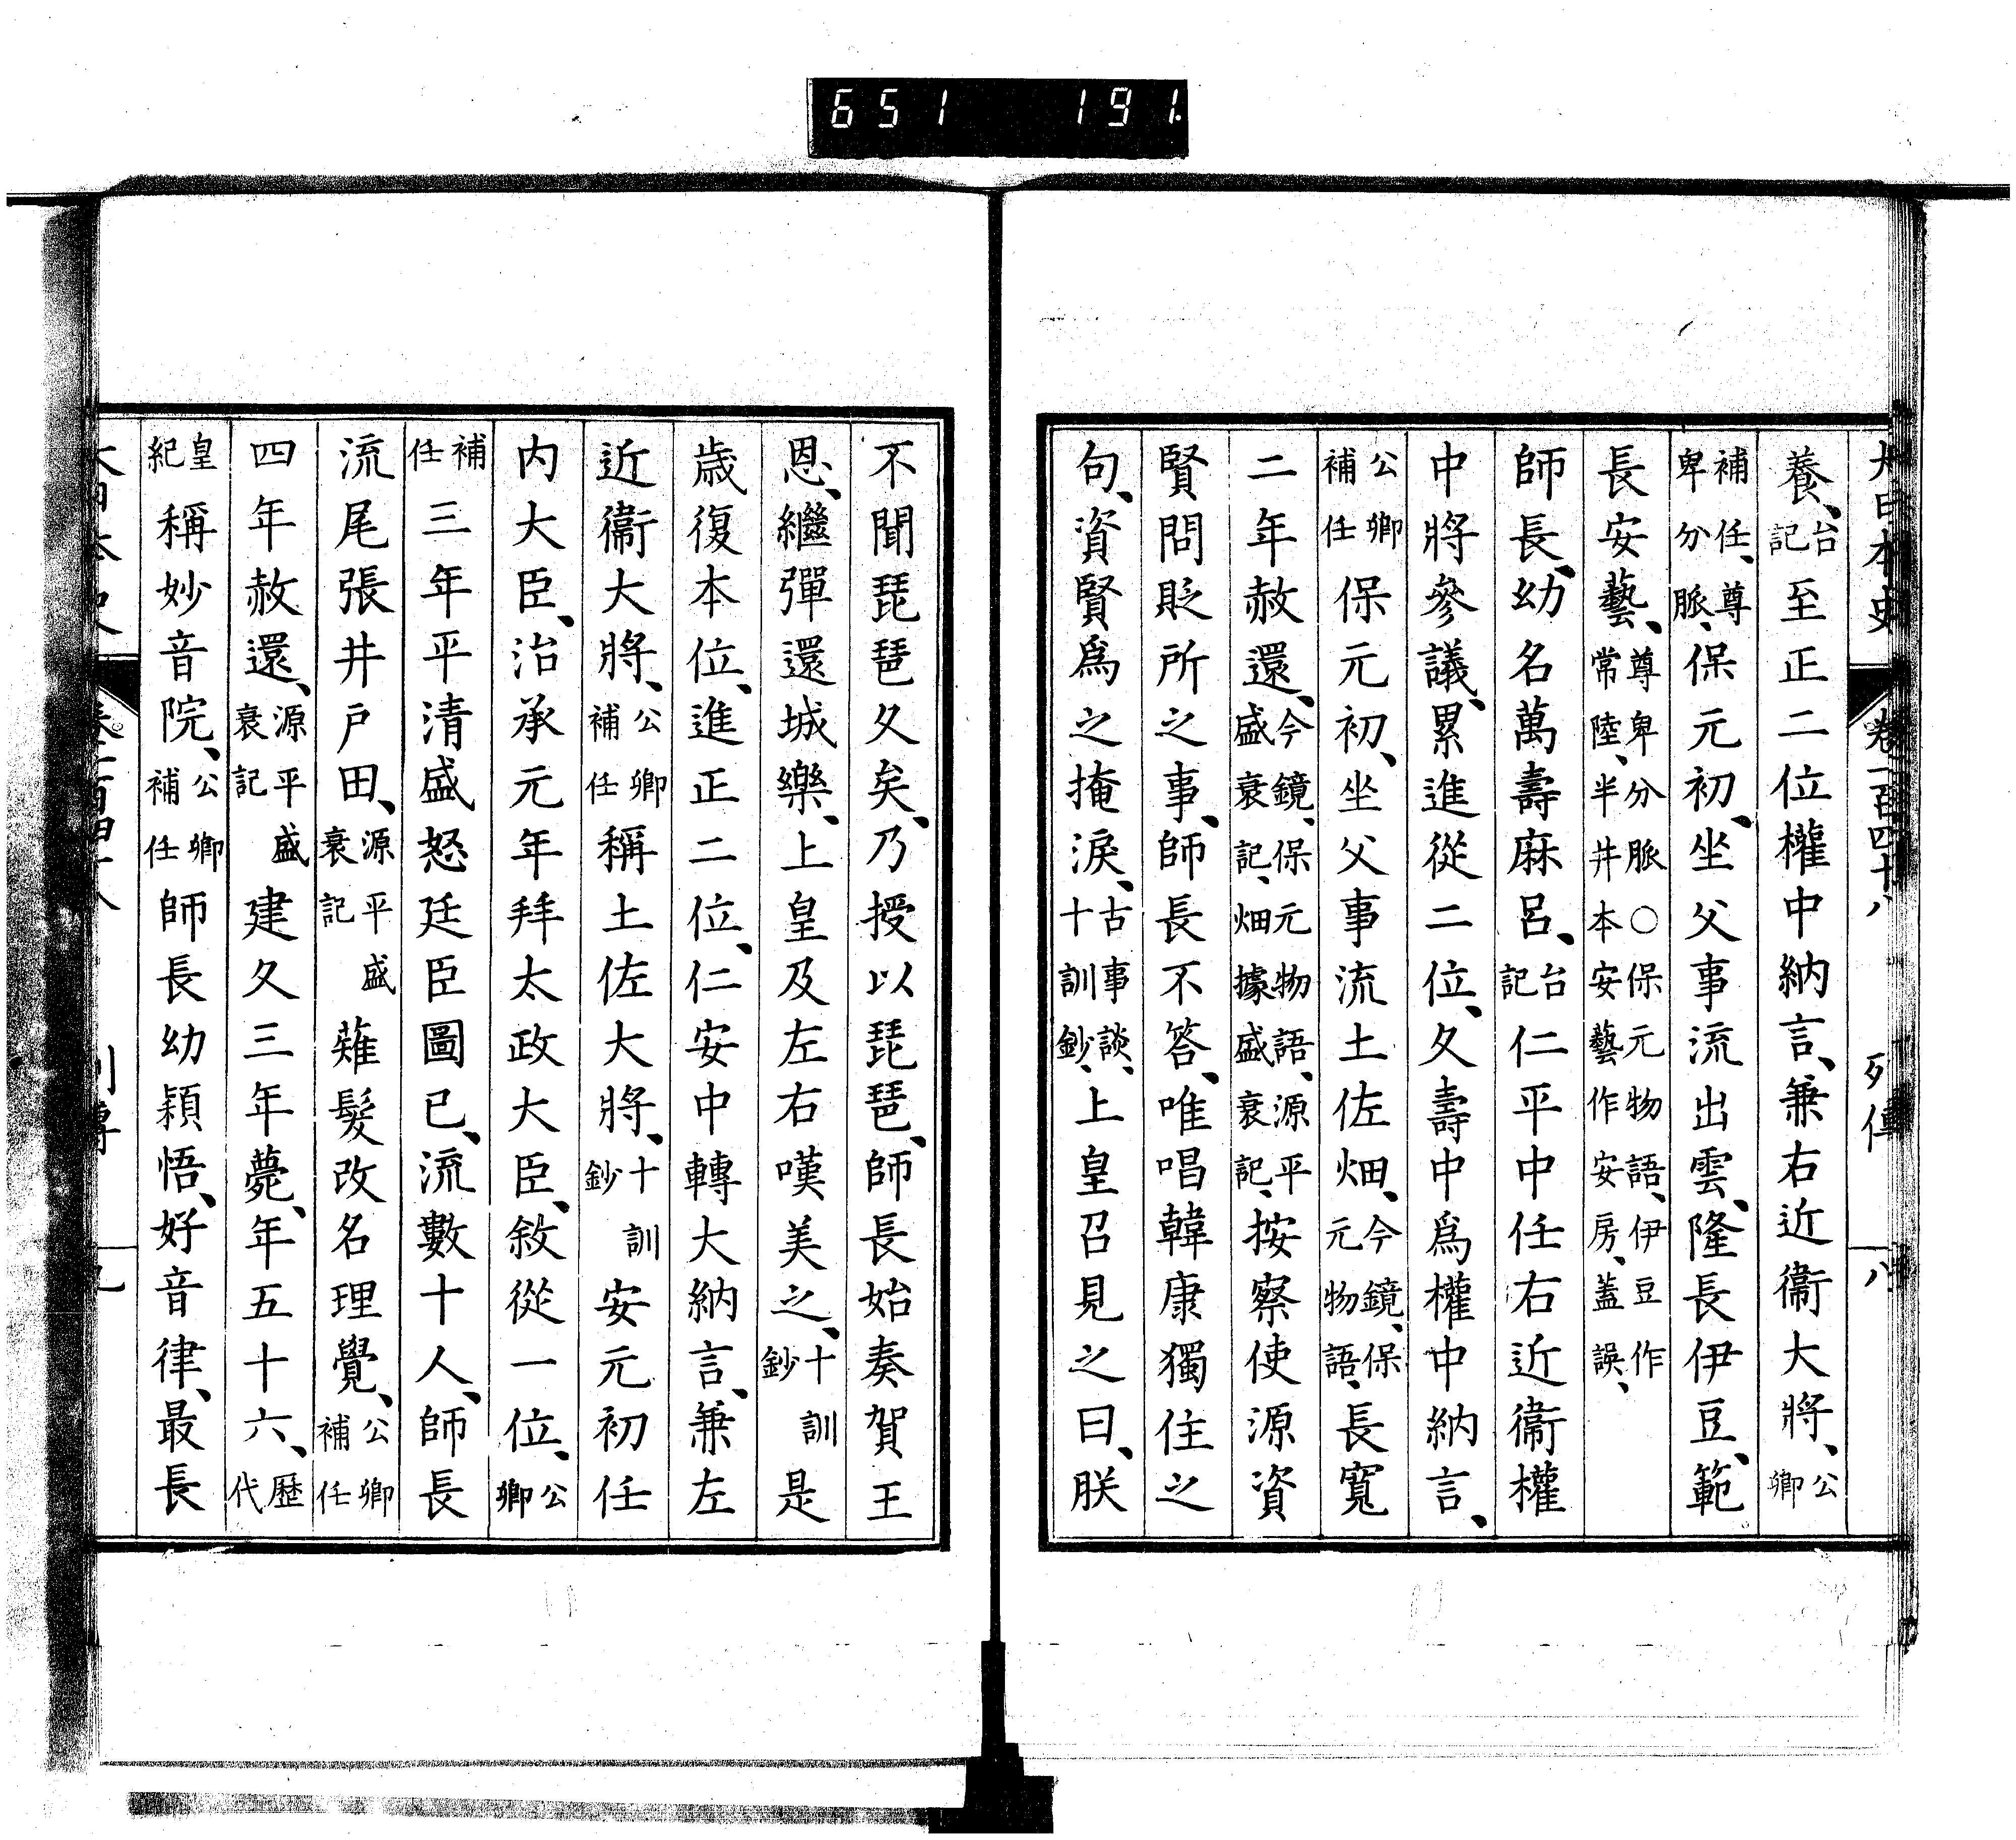 651 191.
大日本史 卷一百四十八 列傳 八
養、台記至正二位權中納言、兼右近衞大將、公卿
補任、尊卑分脈、保元初、坐父事流出雲、隆長伊豆、範
長安藝、尊卑分脈○保元物語、伊豆作常陸、半井本安藝作安房、蓋誤、
師長、幼名萬壽麻呂、台記仁平中任右近衞權
中將參議、累進從二位、久壽中爲權中納言、
公卿補任保元初、坐父事流土佐畑、今鏡、保元物語、長寬
二年赦還、今鏡、保元物語、源平盛衰記、畑據盛衰記、按察使源資
賢問貶所之事、師長不答、唯唱韓康獨住之
句、資賢爲之掩淚、古事談、十訓鈔、上皇召見之曰、朕
不聞琵琶久矣、乃授以琵琶、師長始奏賀王
恩、繼彈還城樂、上皇及左右嘆美之、十訓鈔是
歲復本位、進正二位、仁安中轉大納言、兼左
近衞大將、公卿補任稱土佐大將、十訓鈔安元初任
内大臣、治承元年拜太政大臣、敘從一位、公卿
補任三年平清盛怒廷臣圖已、流數十人、師長
流尾張井戶田、源平盛衰記薙髮改名理覺、公卿補任
四年赦還、源平盛衰記建久三年薨、年五十六、歷代
皇紀稱妙音院、公卿補任師長幼穎悟、好音律、最長